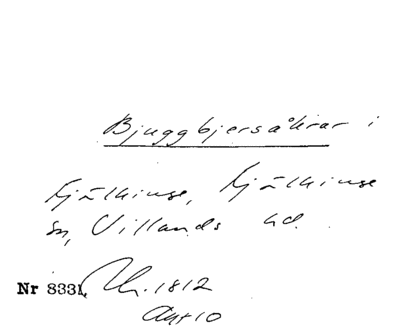 Bjuggbjersåkrar i
Fjälkinge, Fjälkinge
sn, Villands hd.
Nr 8331, Uh. 1812
Akt 10